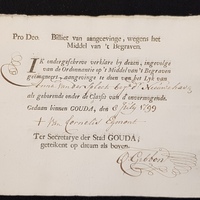 Pro Deo. Billiet van aangeevinge, wegens het
Middel van 't Begraven.
IK ondergeschreve verklare by dezen, ingevolge
van de Ordonnantie op 't Middel van 't Begraven
aan te geven het Lyk van
Anna van der
als gehorende onder de Classis van d'onvermogende.
Gedaan binnen GOUDA, den 6 July 1799
Cornelis
Ter Secretarye der Stad GOUDA,
getekent op datum als boven.